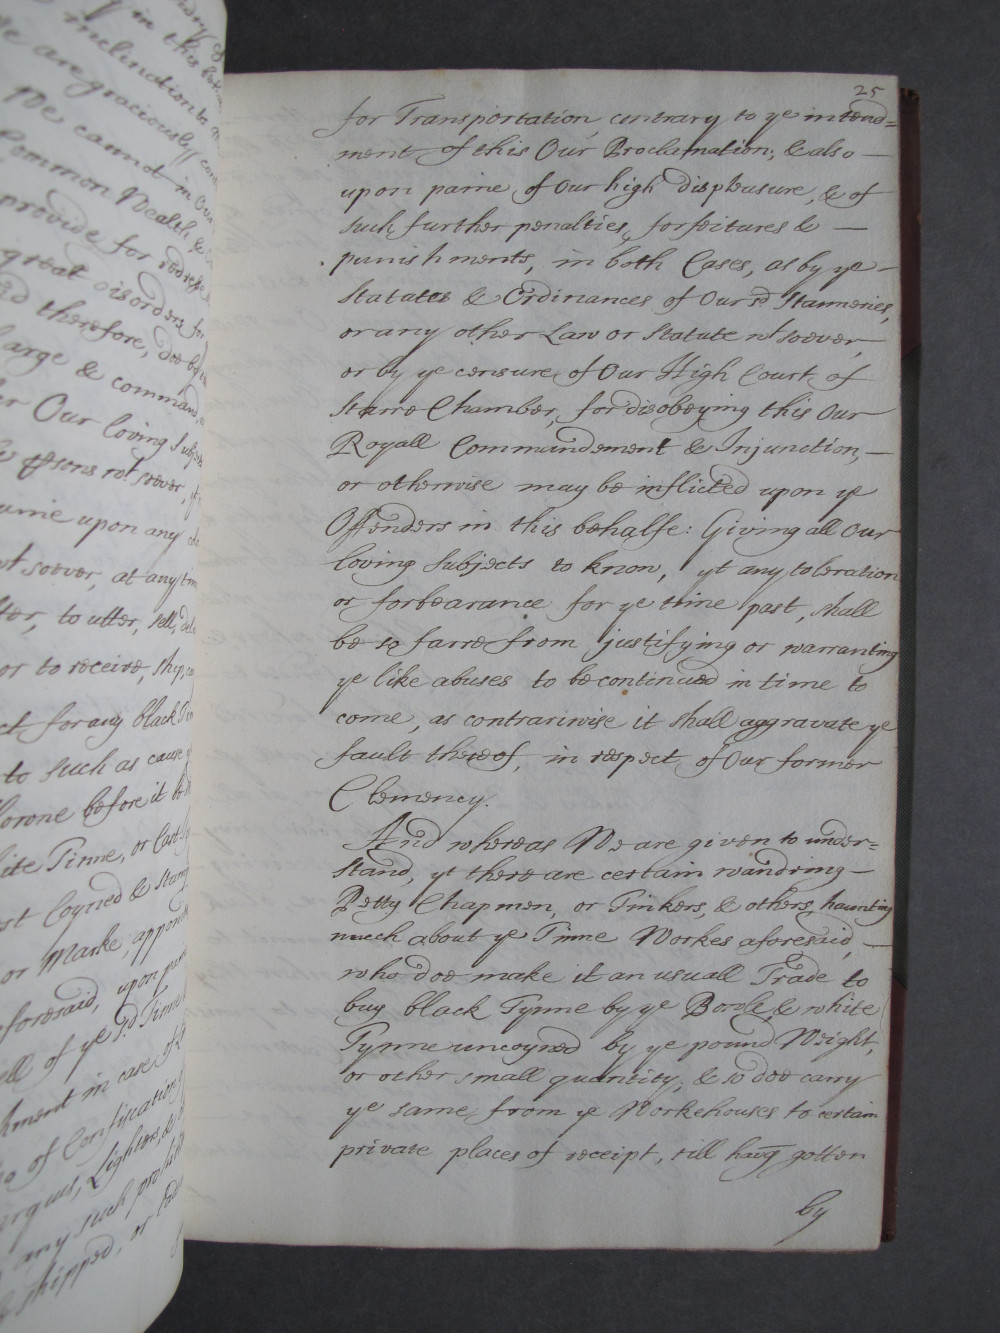 in this
inclination to
We are graciously
We cannot in Our
Common Wealth, &
provide for redresse
great disorders
therefore, doe by
charge & command
Our loving Subjects
&c ꝑsons wt. soever,
upon any
wt soever, at any time
to utter, sell,
or to receive, ship,
for any black
to such as cause
before it be
white Tinne, or
Coyned & Stamp
or Marke,
aforesaid, upon
of ye sd. Tinne
in case of
of Confiscation
Lighters, &
any such
shipped, or
25
for Transportation, contrary to ye intend=
ment of this Our Proclamation; & also —
upon paine of Our high displeasure, & of
such further penalties, forfeitures & —
punishments, in both Cases, as by ye —
Statutes & Ordinances of Our sd. Stanneries,
or any other Law or Statute wt soever,
or by ye censure of Our High Court of
Starre Chamber, for disobeying this Our
Royall Commandement & Injunction, —
or otherwise may be inflicted upon ye
Offenders in this behalfe: Giving all Our
loving Subjects to know, yt any toleration
or forbearance for ye time past, shall
be so farre from justifying or warranting
ye like abuses to be continued in time to
come, as contrariwise it shall aggravate ye
fault thereof, in respect of Our former
Clemency.
And whereas We are given to under=
stand, yt there are certain wandring —
Petty Chapmen, or Tinkers, & others, haunting
much about ye Tinne Workes aforesaid, —
who doe make it an usuall Trade to
buy black Tynne by ye Bowle, & white
Tynne uncoyned by ye pound Weight,
or other small quantity, & so doe carry
ye same from ye Workehouses to certain
private places of receipt, till havg gotten
by